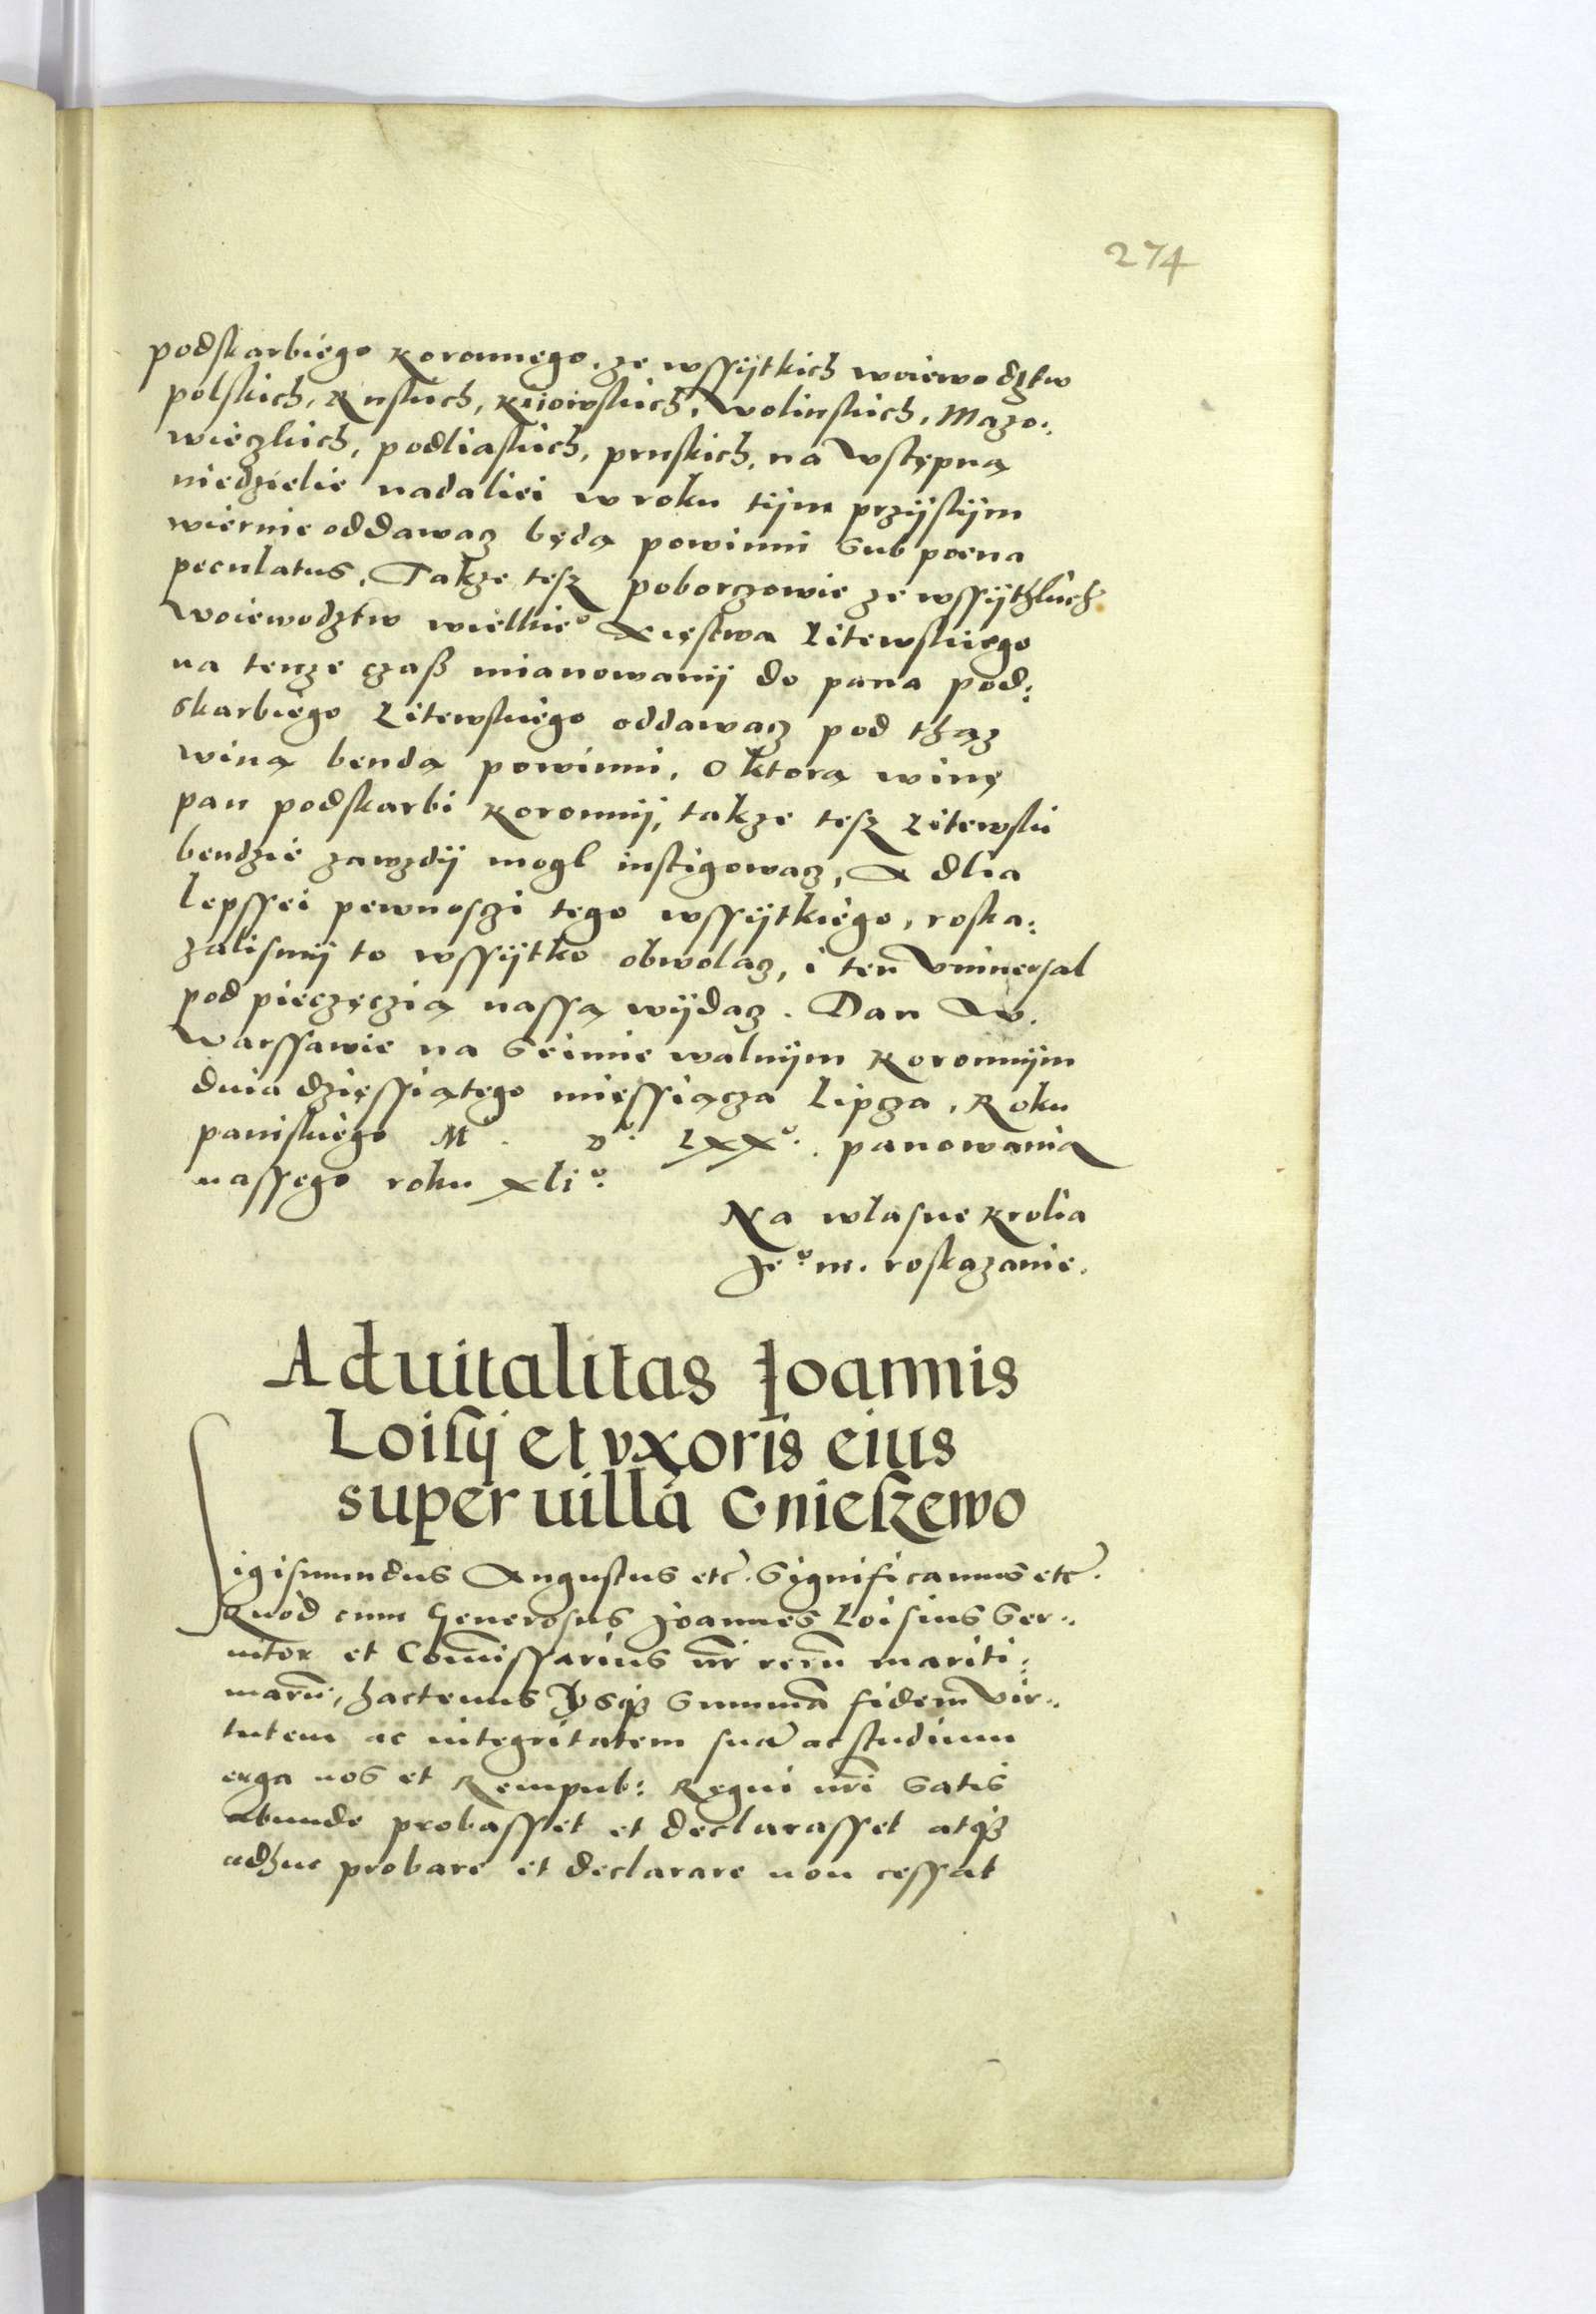 274
podskarbiego koronnego. ze wssÿtkich woiewodztw
polskich, Ruskich, kijowskich, wolinskich, Mazo:
wieczkich, podliaskich, pruskich, na wstępną
niedzielie nadaliei w roku tÿm przÿslÿm
wiernie oddawacz będą powinni sub poena
peculatus, Takze tesz poborczowie ze wssÿthkich
Woiewodztw wielkieº Xięstwa Litewskiego
na tenze czaß mianowanÿ do pana pod:
skarbiego Litewskiego oddawacz pod thąz
winą bendą powinni, O ktorą winę
pan podskarbi koronnÿ, takze tesz Litewski
bendzie zawzdÿ mogl instigowacz, A dlia
lepssei pewnoszi tego wssÿtkiego, roska:
zalismÿ to wssÿtko obwolacz, i ten Vniuersal
pod pieczęczią nassą wÿdacz. Dan W.
Warssawie na Seimie walnÿm koronnÿm
dnia dziessiątego miessiącza Lipcza, Roku
paniskiego Mº. Dº. LXXº. panowania
nassego roku xliº.
Na wlasne krolia
Jeº m. roskazanie.
Aduitalitas Joannis
Loisÿ et vxoris eius
super uillā Gnieszewo
Sigismundus Augustus etc̄. Significamus etc̄.
Quod cum Generosus Joannes Loisius Ser:
uitor et Com̄issarius nr̄ rerū mariti:
marū, hactenus Vsq₃ summā fidem Vir:
tutem ac integritatem suā ac studium
erga nos et Rempub: Regni nr̄i satis
abunde probasset et declarasset atq₃
adhuc probare et declarare non cessat